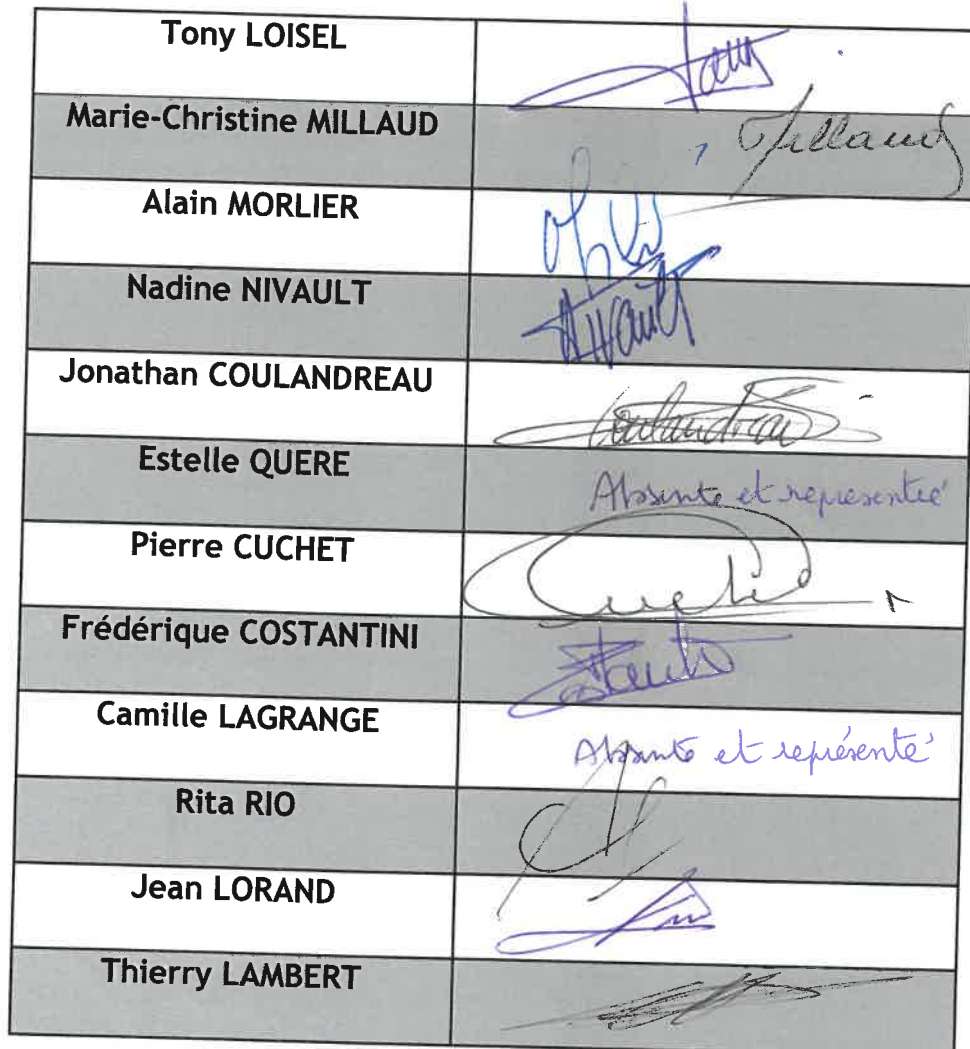 Tony LOISEL
Marie-Christine MILLAUD
Millaud
Alain MORLIER
Nadine NIVAULT
Nivault
Jonathan COULANDREAU
Coulandreau
Estelle QUERE
Absente et representée
Pierre CUCHET
Cuchet
Frédérique COSTANTINI
Camille LAGRANGE
Absente et représenté
Rita RIO
Jean LORAND
Thierry LAMBERT